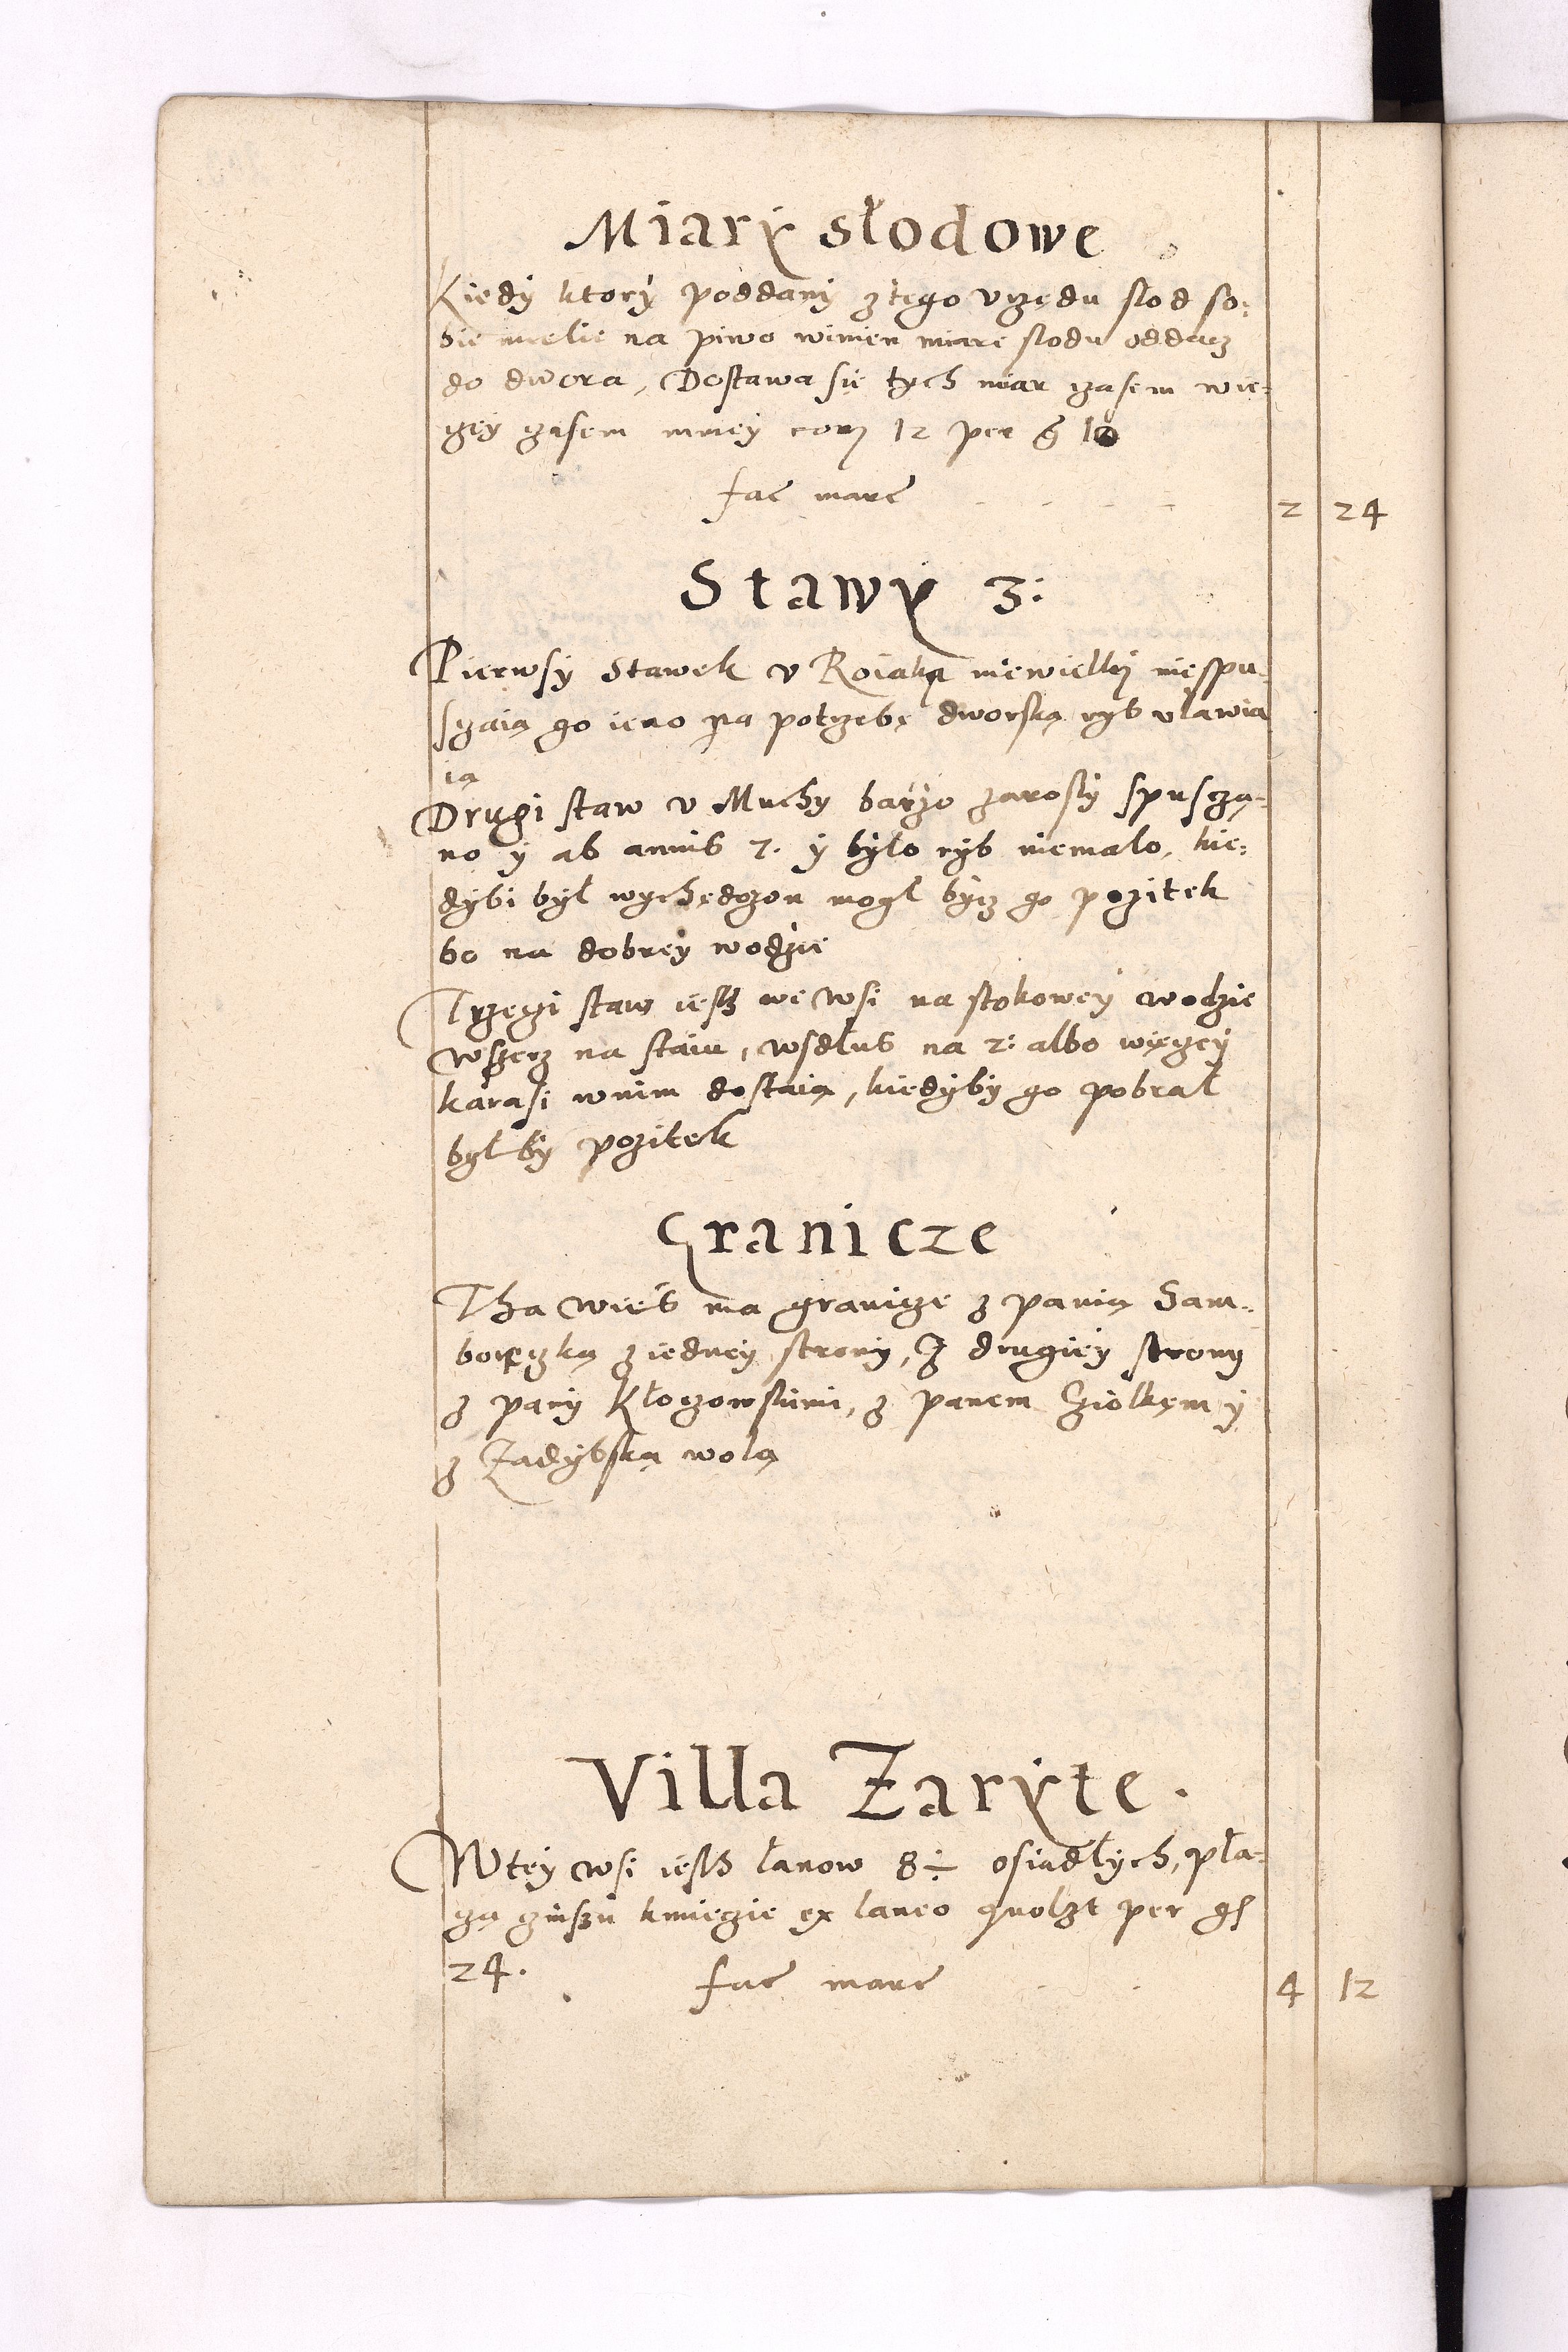 Miary słodowe
Kiedy ktory poddany z tego vrzędu slod so:
bie miele na piwo winien miare slodu oddacz
do dwora, Dostawa się tych miar czasem wię:
czey czasem mniey cor 12 per g 10
fac marc 2 24
Stawy 3:
Pierwsy Stawek v Roiaka niewielki niespu-
sczaią go ieno na potrzebę dworską ryb vławia
ią
Drugi staw v Muchy barzo zarosly spuscza-
no y ab annis 7. y było ryb niemało, kie:
dybi był wychędozon mogł bycz go pozitek
bo na dobrey wodzie
Trzeczi staw iesth we wsi na stokowey wodzie
wszerz na staiu, wsdłus na 2: albo więczey
karasi wnim dostaią, kiedyby go pobrał
byłby pozitek
Granicze
Tha wies ma granicze z panią Sam-
borzeczką z iedney strony, Z drugiey strony
z pany Kłoczowskimi, z panem Cziołkem y
z Zadybską wolą
Villa Zaryte.
W tey wsi iesth łanow 8 ÷ osiadłych, pła-
czą czinszu kmieczie ex laneo quolzt per gs
24. fac marc 4 12